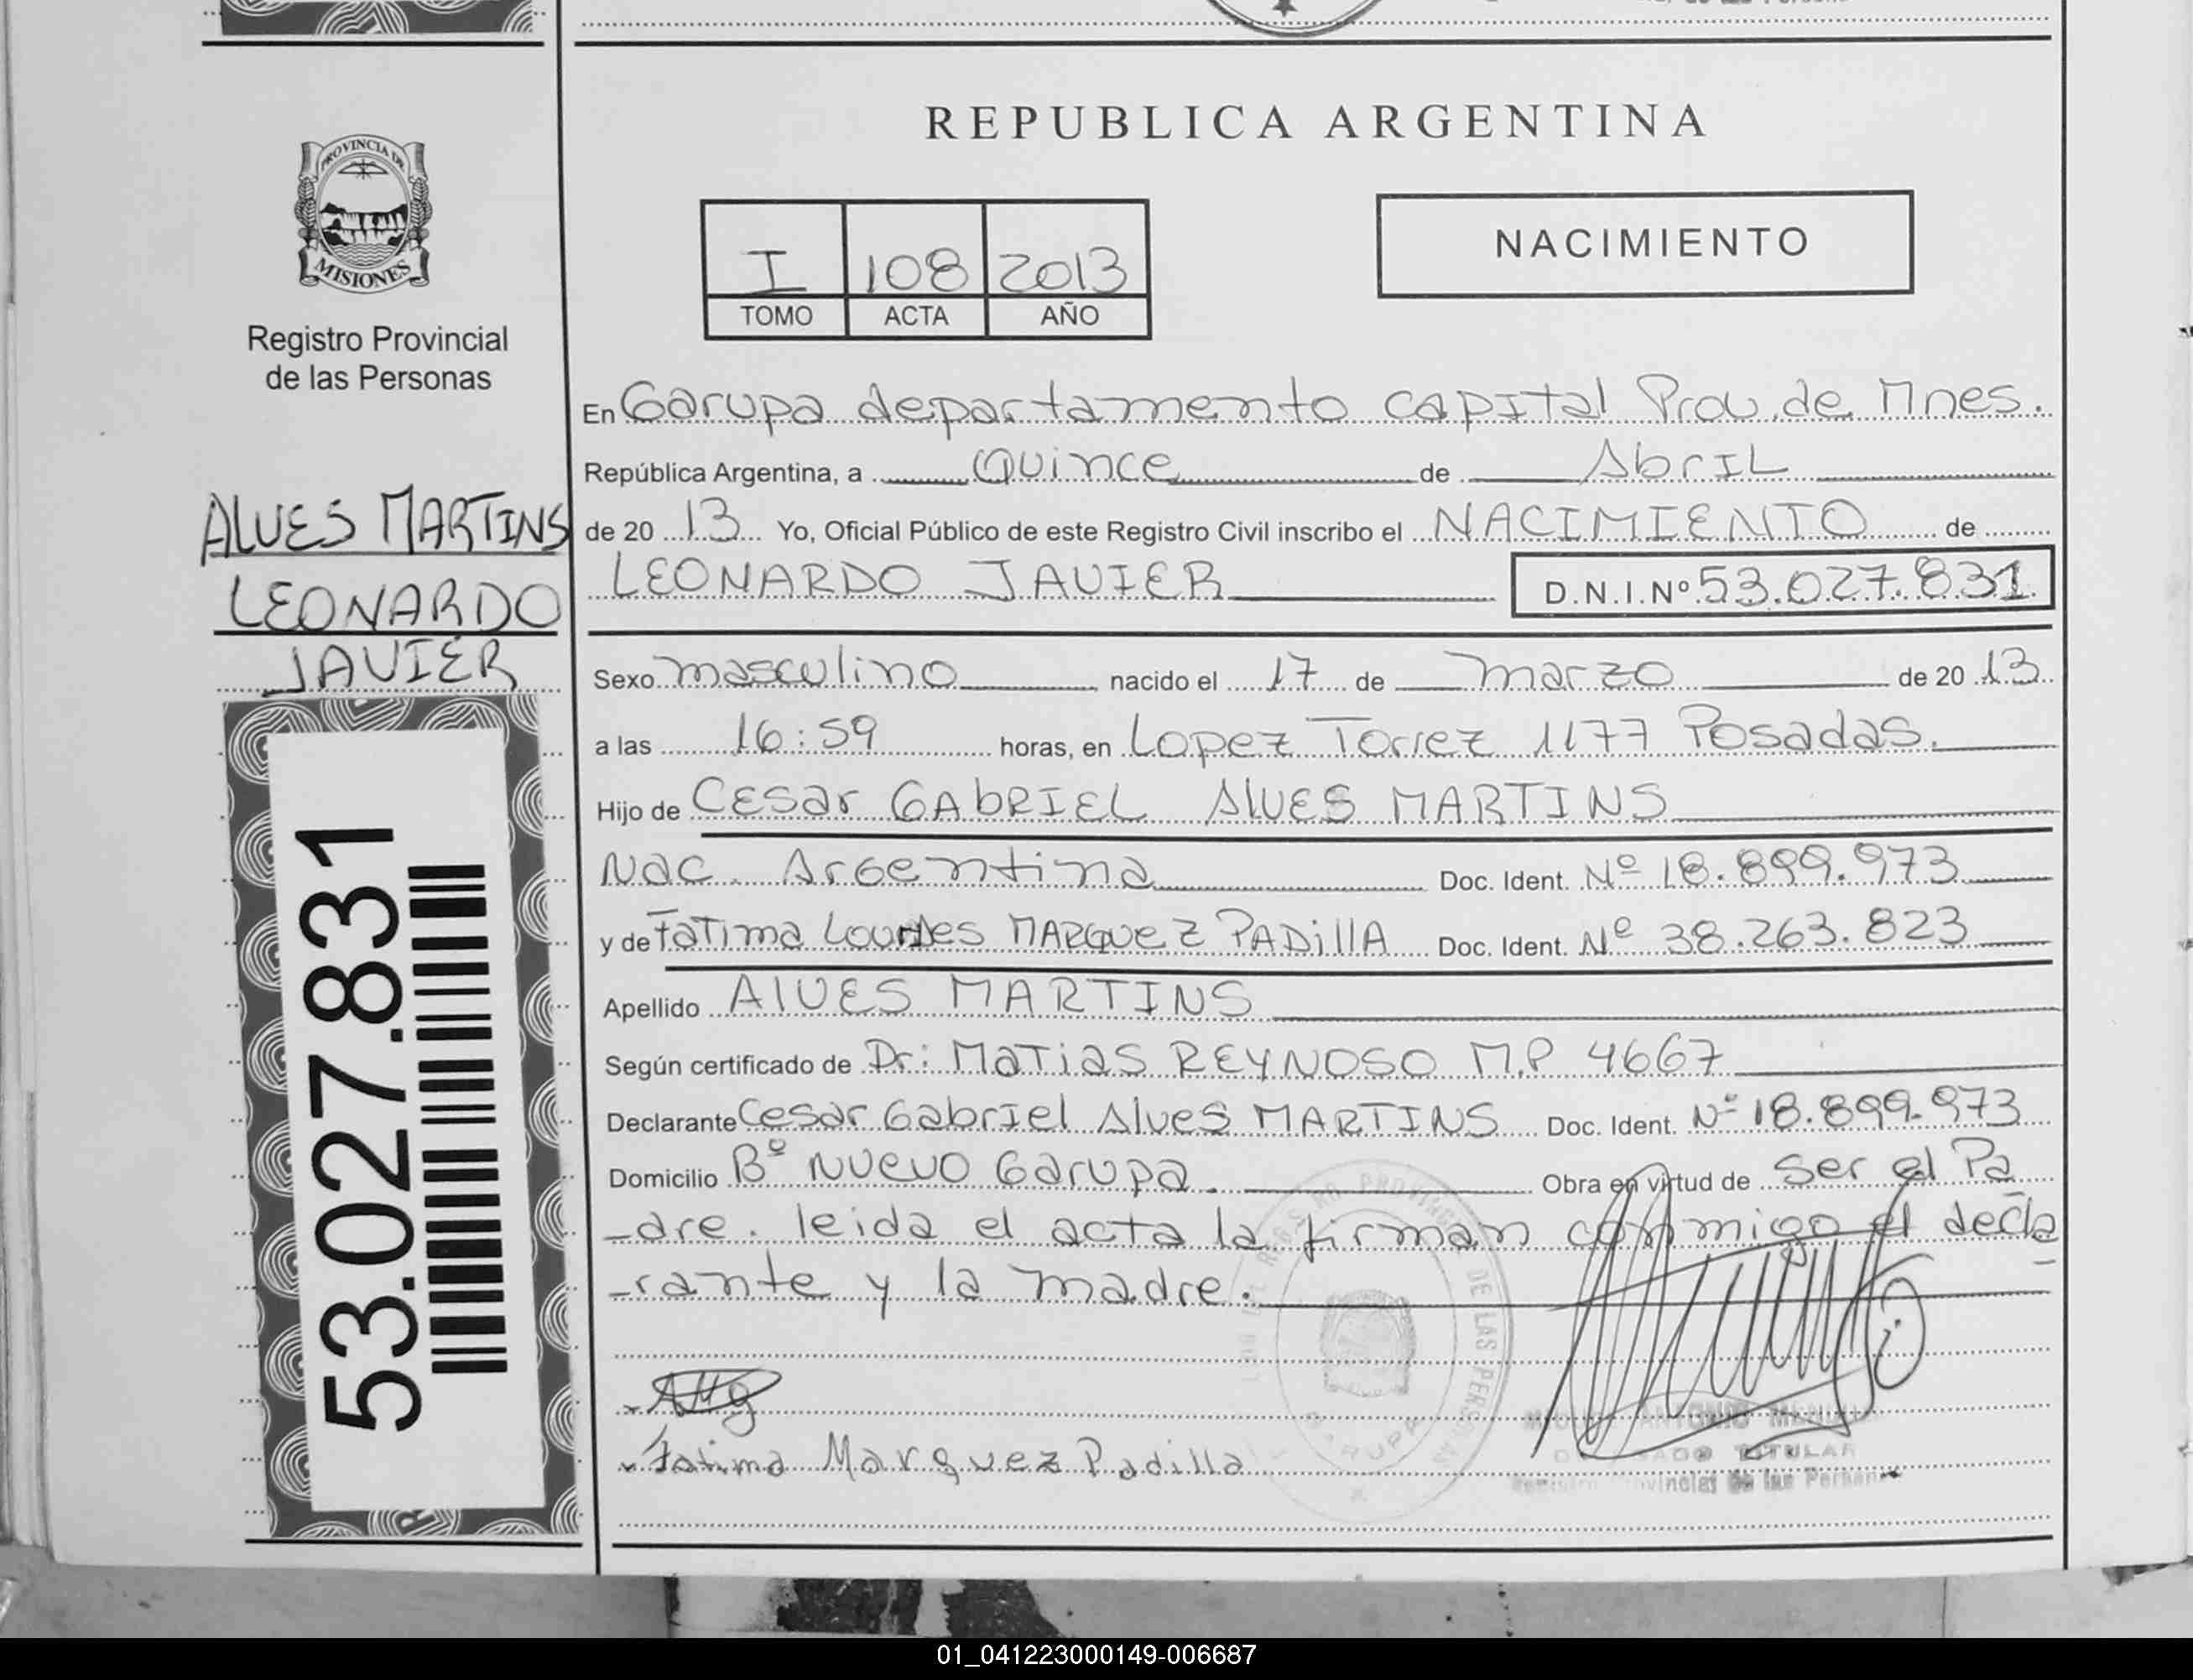 PROVINCIA DE
MISIONES
Registro Provincial
de las Personas
ALVES MARTINS
LEONARDO
JAVIER
53.027.831
REPUBLICA ARGENTINA
I 108 2013
TOMO ACTA AÑO
NACIMIENTO
En Garupa departamento capital Prov. de Mnes.
República Argentina, a Quince de Abril
de 20 13 Yo, Oficial Público de este Registro Civil inscribo el NACIMIENTO de
LEONARDO JAVIER D.N.I.Nº 53.027.831
Sexo masculino nacido el 17 de marzo de 20 13
a las 16:59 horas, en Lopez Torrez 1177 Posadas.
Hijo de Cesar GAbRIEL AlvES MARTINS
Nac. Argentina Doc. Ident. Nº 18.899.973
y de Fatima Lourdes MARQUEZ PADillA Doc. Ident. Nº 38.263.823
Apellido AlVES MARTINS
Según certificado de Dr: MaTiaS REYNOSO M.P 4667
Declarante Cesar Gabriel Alves MARTINS Doc. Ident. Nº 18.899.973
Domicilio Bº Nuevo Garupa. Obra en virtud de Ser el Pa
-dre. leida el acta la firman conmigo el decla
-rante y la madre.
Fatima Marquez Padilla
ANTONIO
TITULAR
de las Personas
DE LAS PERSONAS
GARUPA
01_041223000149-006687